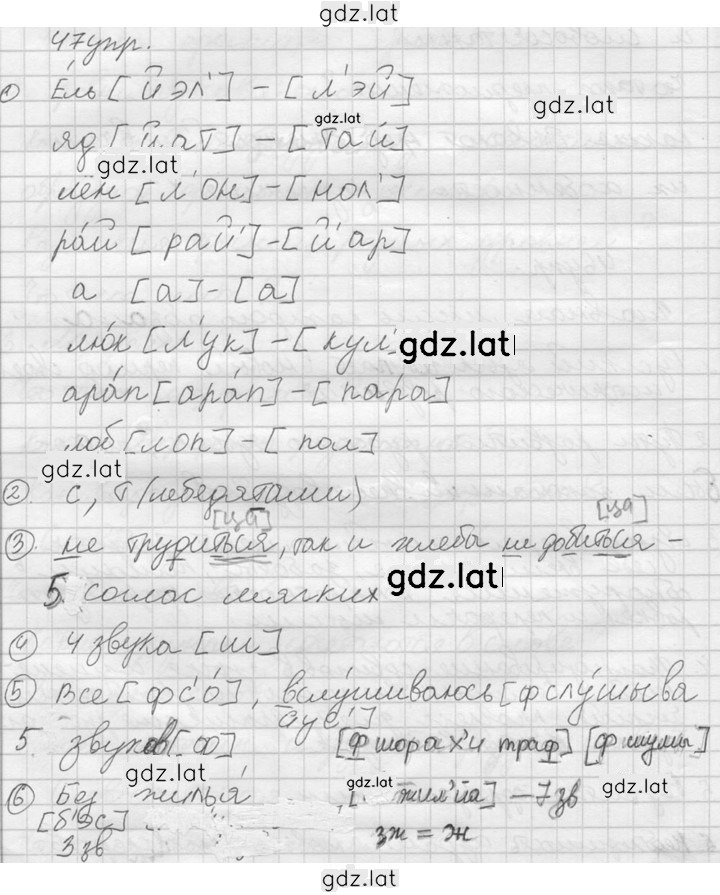 gdz.lat
47упр.
① Е́ль [й эл'] – [л'эй]
gdz.lat
gdz.lat
яд [й ат] – [тай]
gdz.lat
лён [л'он] – [нол']
ра́й [рай'] – [й'ар]
а [а] – [а]
люк [л'ук] – [кул'
gdz.lat
ара́п [ара́п] – [па́ра]
лоб [лоп] – [пол]
gdz.lat
② с, т (лебедятами)
[ца] [ца]
③ не трудиться, так и хлеба не добиться –
5 соглас мягких
gdz.lat
④ 4 звука [ш]
⑤ Все [фс'о́], вслу́шиваюсь [фслу́шыва
айус']
5 звуков [ф] [фшорах'и траф] [фшумы]
gdz.lat
⑥ Без жилья́ [жил'йа] – 7 зв
gdz.lat
gdz.lat
[б'эс] зж = ж
3 зв
gdz.lat